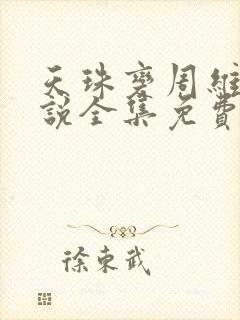 天珠變周維
說全集免費
徐東武